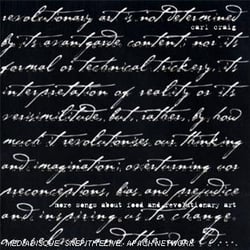 revolutionary art is not determined
carl craig
by its avantgarde content, nor its
formal or technical trickery, its
interpretation of reality or its
verisimilitude, but, rather, by how
much it revolutionises our thinking
and imagination; overturning our
more songs about food and revolutionary art
preconceptions, bias and prejudice
and inspiring us to change